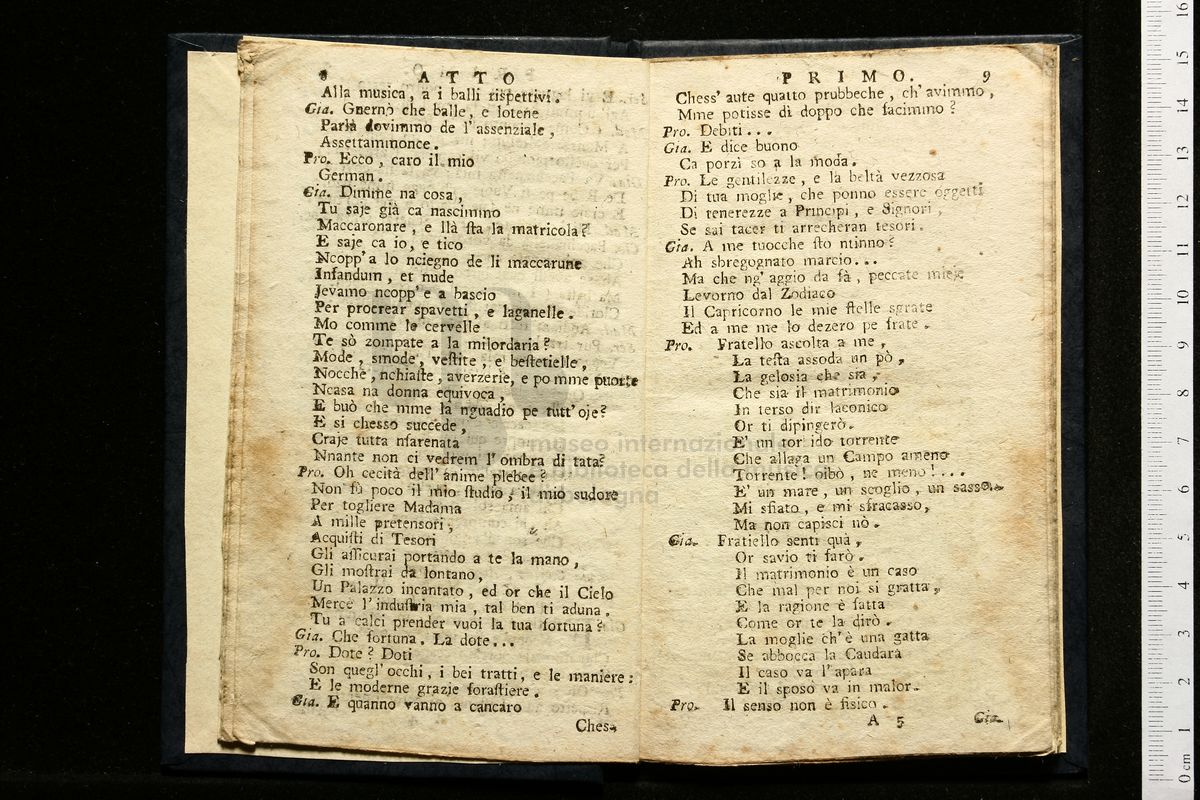 8 ATTO
Alla musica, a i balli rispettivi.
Gia. Gnernò che balle, e lotene
Parlà dovimmo de l'assenziale,
Assettammonce.
Pro. Ecco, caro il mio
German.
Gia. Dimme na cosa,
Tu saje già ca nascimmo
Maccaronare, e llà sta la matricola?
E saje ca io, e tico
Ncopp'a lo nciegno de li maccarune
Infandum, et nude
Jevamo ncopp'e a bascio
Per procrear spavetti, e laganelle.
Mo comme le cervelle
Te sò zompate a la milordaria?
Mode, smode, vestite, e bestetielle,
Nocche, nchiaste, averzerie, e po mme puorte
Ncasa na donna equivoca,
E buò che mme la nguadio pe tutt'oje?
E si chesso succede,
Craje tutta nfarenata
Nnante non ci vedrem l'ombra di tata?
Pro. Oh cecità dell'anime plebee?
Non fù poco il mio studio, il mio sudore
Per togliere Madama
A mille pretensori,
Acquisti di Tesori
Gli assicurai portando a te la mano,
Gli mostrai da lontano,
Un Palazzo incantato, ed or che il Cielo
Mercè l'industria mia, tal ben ti aduna.
Tu a calci prender vuoi la tua fortuna?
Gia. Che fortuna. La dote...
Pro. Dote? Doti
Son quegl'occhi, i bei tratti, e le maniere:
E le moderne grazie forastiere.
Gia. E quanno vanno a cancaro
Ches-
PRIMO. 9
Chess'aute quatto prubbeche, ch'avimmo,
Mme potisse dì doppo che facimmo?
Pro. Debiti...
Gia. E dice buono
Ca porzì so a la moda.
Pro. Le gentilezze, e la beltà vezzosa
Di tua moglie, che ponno essere oggetti
Di tenerezze a Principi, e Signori,
Se sai tacer ti arrecheran tesori.
Gia. A me tuocche sto ntinno?
Ah sbregognato marcio...
Ma che ng'aggio da fà, peccate mieje
Levorno dal Zodiaco
Il Capricorno le mie stelle sgrate
Ed a me me lo dezero pe frate.
Pro. Fratello ascolta a me,
La testa assoda un pò,
La gelosia che sia,
Che sia il matrimonio
In terso dir laconico
Or ti dipingerò.
E' un torbido torrente
Che allaga un Campo ameno
Torrente! oibò, ne meno!...
E' un mare, un scoglio, un sasso.
Mi sfiato, e mi sfracasso,
Ma non capisci nò.
Gia. Fratiello senti quà,
Or savio ti farò.
Il matrimonio è un caso
Che mal per noi si gratta,
E la ragione è fatta
Come or te la dirò.
La moglie ch'è una gatta
Se abbocca la Caudara
Il caso va l'apara
E il sposo va in malor.
Pro. Il senso non è fisico.
A 5 Gia.
museo internazionale
biblioteca della musica
bologna